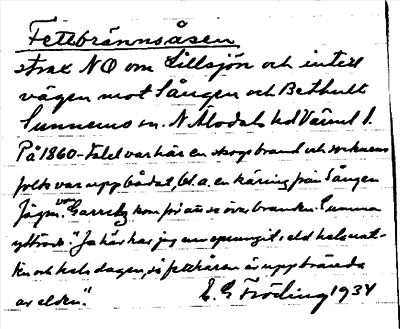 Fettbrännsåsen
strax NO om Lillsjön och intill
vägen mot Sången och Bethult
Sunnemo sn. N. Älvdals hd Värml l.
På 1860-talet var här en skogsbrand och socknens
folk var uppbådat, bl.a. en käring från Sången
Jägm. von Garretz kom för att se över branden. Gumman
yttrade: "Ja här har jag nu sprungit i eld hela nat-
ten och hela dagen, så fettkåren är uppbrända
av elden."
E. G. Fröding 1934